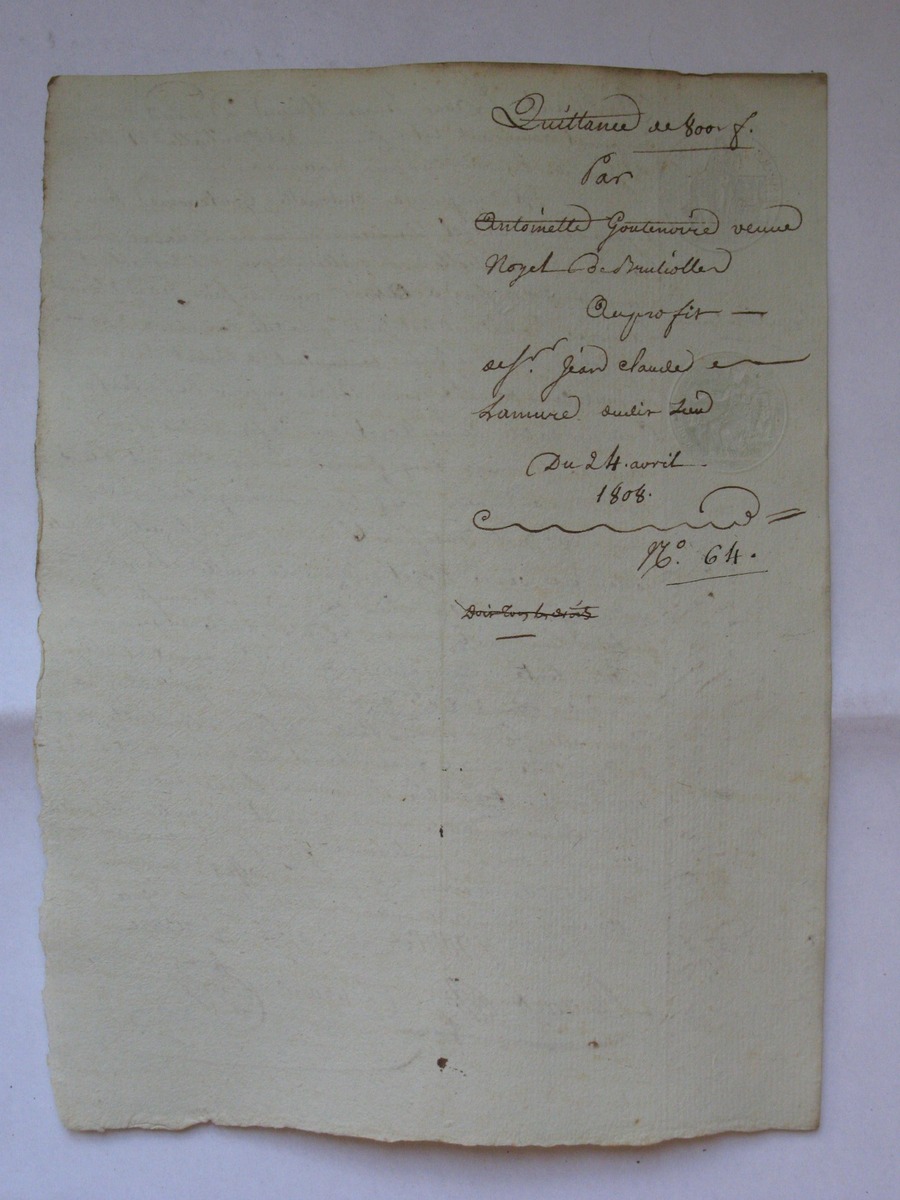 Quittance de 800 f.
Par
Antoinette Goutenoire veuve
Noyel de Bruliolles
Au profit
de Sr. Jean Claude
Lamure dudit Lieu
Du 24 avril
1808.
No. 64.
Doit tous les droits